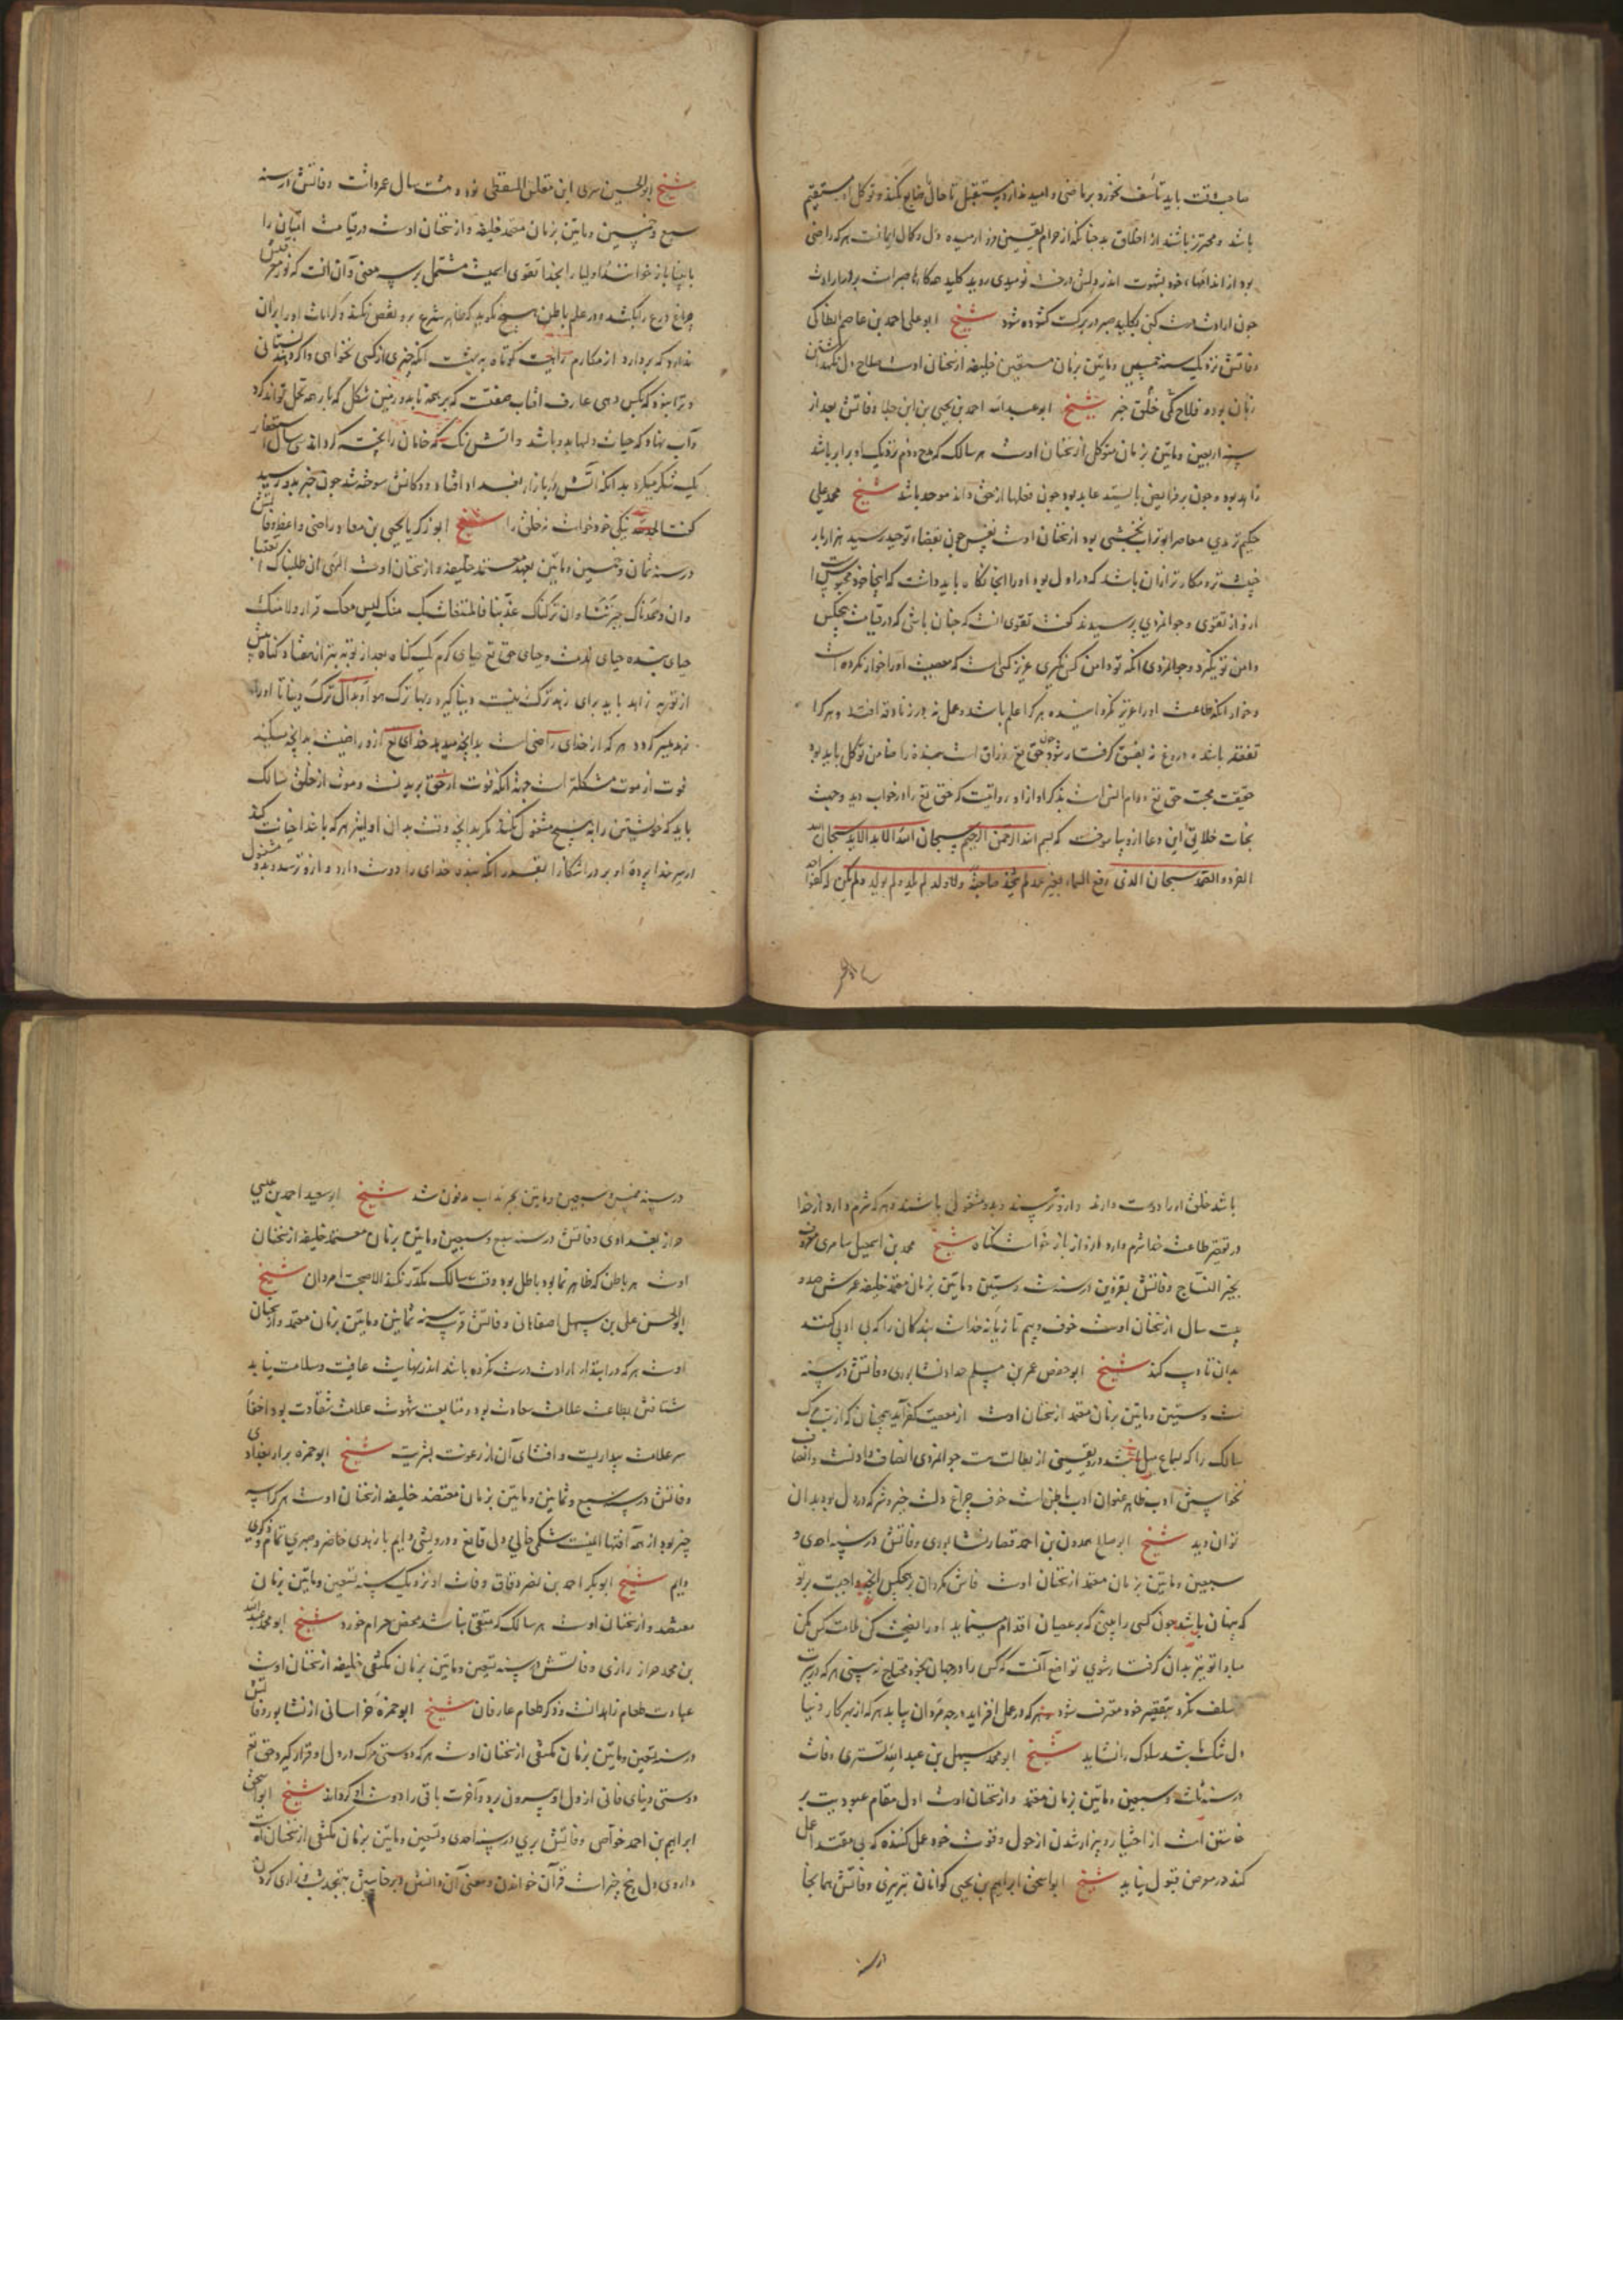 صاحب وقت باید تأسف نخورد بر ماضی و امید ندارد بمستقبل تا حال ضایع نکند و توکل او مستقیم
باشد و محترز باشند از اخلاق بد چنانکه از حرام
بود از اندامها خود بشهوت اندر دلش درخت نومیدی روید کلید همه کارها صبر است
چون ارادت درست کنی بکلید صبر در برکت گشوده شود شیخ ابو علی احمد بن عاصم انطاکی
وفاتش نزدیک سنه خمسین و مایتین بزمان مستعین خلیفه از سخنان اوست صلاح دل نگهداشتن
زبان بود و فلاح شیخ ابو عبد الله احمد بن یحیی بن ابن جلا وفاتش بعد از
سنه اربعین و مایتین بزمان متوکل از سخنان اوست هر سالک که مدح و ذم نزدیک او برابر باشد
زاهد بود و چون بر فرایض بایستد عابد بود چون فعلها از حق داند موحد باشد شیخ محمد علی
حکیم ترمدی معاصر ابو تراب نخشبی بود از سخنان اوست
ازو از تقوی و جوانمردی پرسیدند گفت تقوی آنست که چنان باشی که در قیامت هیچکس
دامن تو نگیرد و جوانمردی آنکه تو دامن کس نگیری عزیز کسی است که معصیت او را خوار نکرده است
و خوار آنکه طاعت او را عزیز نگردانیده هر که را علم باشد و عمل نه در زنادقه افتد و هر کرا
تفقه باشد و ورع نه بفسق گرفتار شود چون حق تع رزاق است بنده را ضامن توکل باید بود
حقیقت محبت حق تع دوام انس است بذکر او از او روایتست که حق تع را در خواب دید و جهت
نجات خلایق این دعا ازو بیاموخت که بسم الله الرحمن الرحیم سبحان الله الابد الابد سبحان الله
الفرد و الصمد سبحان الذی رفع السماء بغیر عمد لم یتخذ صاحبة ولا ولد لم یلد ولم یولد ولم یکن له کفوا احد
شیخ ابو الحسین سری ابن مغلس السقطی نود و هشت سال عمر داشت وفاتش در سنه
سبع و خمسین و مایتین بزمان معتمد خلیفه و از سخنان اوست در قیامت امتیان را
بانبیا باز خوانند و اولیا را بخدا تقوی ایست مشتمل بر سه معنی و آن آنست که نور معرفتش
چراغ ورع را بکشد و در علم باطن هیچ نگوید که ظاهر شرع برو نقض نکند و کرامات او را بر آن
ندارد که پرده از محارم
و آب نهاد که حیات دلها بدو باشد و آتش رنگ که خامان را پخته گرداند سی سال استغفار
یک شکر میکرد بدانکه آتش در بازار بغداد افتاد و دکانش سوخته شد چون خبر بدو رسید
گفت الحمد لله نیکی خود خواست نه خلق را شیخ ابو زکریا یحیی بن معاد رازی واعظ وفاتش
در سنه ثمان و خمسین و مایتین بعهد معتمد خلیفه و از سخنان اوست الهی ان طلبناک اتعبتنا
وان
حیای بنده حیای ندمست و حیای حق تع حیای کرم یک گناه بعد از توبه بتر از هفتاد گناه پیش
از توبه زاهد باید برای زهد ترک
زهد میسر گردد هر که از خدای راضی است بدانچه میدهد خدای تع ازو راضیست بدانچه میکند
فوت از موت مشکلتر است جهت آنکه فوت از حق بریدنست و موت از خلق سالک
باید که خویشتن را بهیچ مشغول نکند مگر بدانچه وقت بدان اولیتر هر که با خدا خیانت کند
در سر خدا پرده او بردرد آشکارا بقدر آنکه بنده خدای را دوست دارد و ازو ترسد و بدو مشغول
باشد خلق او را دوست دارند و ازو ترسند و بدو مشغولی باشند و هر که شرم دارد از خدا
در تقصیر طاعت خدا شرم دارد ازو از باز خواست گناه شیخ محمد بن اسمعیل سامری معروف
بخیر النساج وفاتش بقزوین در سنه ست و ستین و مایتین بزمان معتمد خلیفه عمرش صد و
بیست سال از سخنان اوست خوف و بیم تازیانه خداست بندگان را که بی ادبی کنند
بدان تادیب کند شیخ ابو حفص عمر بن مسلم حداد نشابوری وفاتش در سنه
ست و ستین و مایتین بزمان معتمد از سخنان اوست از معصیت کفر آید همچنان که از تب مرگ
سالک را که سماع میل باشد در بقیتی از بطالتست جوانمردی انصاف دادنست و انصاف
نخواستن ادب ظاهر عنوان ادب باطن است خوف چراغ دلست خیر و شر که در دل بود بدان
توان دید شیخ ابو صالح حمدون بن احمد قصار نشابوری وفاتش در سنه احدی و
سبعین و مایتین بزمان معتمد از سخنان اوست فاش مگردان بر هیچکس آنچه واجبست بر تو
که پنهان باشد چون کسی را بینی که بر عصیان اقدام مینماید او را نصیحت کن ملامت کس مکن
مبادا تو نیز بدان گرفتار شوی تواضع آنست که کس را در جهان بخود محتاج نه بینی هر که در سیرت
سلف نگرد بتقصیر خود معترف شود هر که در عمل افزاید درجه مردان بیابد هر که از بهر کار دنیا
دل تنگ باشد سلوک را نشاید شیخ ابو محمد سهیل بن عبد الله تستری وفات
در سنه ثلث و سبعین و مایتین بزمان معتمد و از سخنان اوست اول مقام عبودیت بر
خاستن است از اختیار و بیزار شدن از حول و قوت خود عمل کننده که بی مقتدا عمل
کند در معرض قبول نیاید شیخ ابو اسحق ابراهیم بن یحیی کوانان تبریزی وفاتش همانجا
در سنه
در سنه خمس و سبعین و مایتین بچرنداب مدفون شد شیخ ابو سعید احمد بن عیسی
خراز بغدادی وفاتش در سنه سبع و سبعین و مایتین بزمان معتمد خلیفه از سخنان
اوست هر باطن که ظاهر نما بود باطل بود وقت سالک مکدر نکند الا صحبت امردان شیخ
ابو الحسن علی بن سهل اصفاهانی وفاتش قرب سنه ثمانین و مایتین بزمان معتمد و از سخنان
اوست هر که در ابتدا ارادت درست نکرده باشد اندر نهایت عافیت و سلامت نیابد
شتافتن بطاعت علامت سعادت بود و متابعت شهوت علامت شقاوت بود اخفاء
سر علامت بیداریست و افشای آن از رعونت بشریت شیخ ابو حمزه بزاز بغدادی
وفاتش در سنه سبع و ثمانین و مایتین بزمان معتضد خلیفه از سخنان اوست هر کرا سه
چیز بود از همه آفتها ایمنست شکمی خالی و دل قانع و درویشی دایم با زهدی حاضر و صبری تمام و ذکری
دایم شیخ ابو بکر احمد بن نصر دقاق وفات او نزدیک سنه تسعین و مایتین بزمان
معتضد و از سخنان اوست هر سالک که متقی نباشد محض حرام خورد شیخ ابو محمد عبد الله
بن محمد خراز رازی وفاتش در سنه تسعین و مایتین بزمان مکتفی خلیفه از سخنان اوست
عبادت طعام زاهدانست و ذکر طعام عارفان شیخ ابو حمزه خراسانی از نشابور وفاتش
در سنه تسعین و مایتین بزمان مکتفی از سخنان اوست هر که دوستی مرگ در دل او قرار گیرد حق تع
دوستی دنیای فانی از دل او بیرون برد و آخرت باقی را دوست او گرداند شیخ ابو اسحق
ابراهیم بن احمد خواص وفاتش بری در سنه احدی و تسعین و مایتین بزمان مکتفی از سخنان اوست
داروی دل پنج چیز است قرآن خواندن و معنی آن دانستن و برخاستن بتهجد شب و زاری کردن